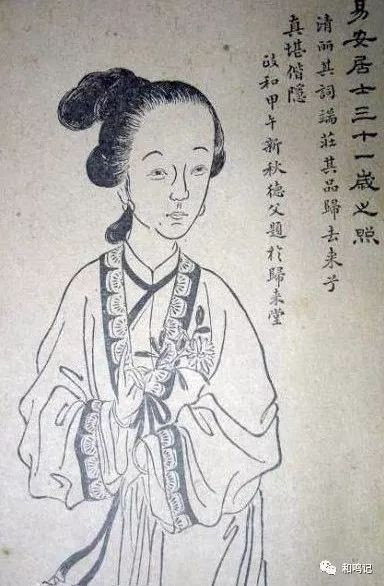 易安居士三十一歲之照
清丽其詞端莊其品歸去来兮
真堪偕隱
政和甲午新秋德父題於歸来堂
和鸣记